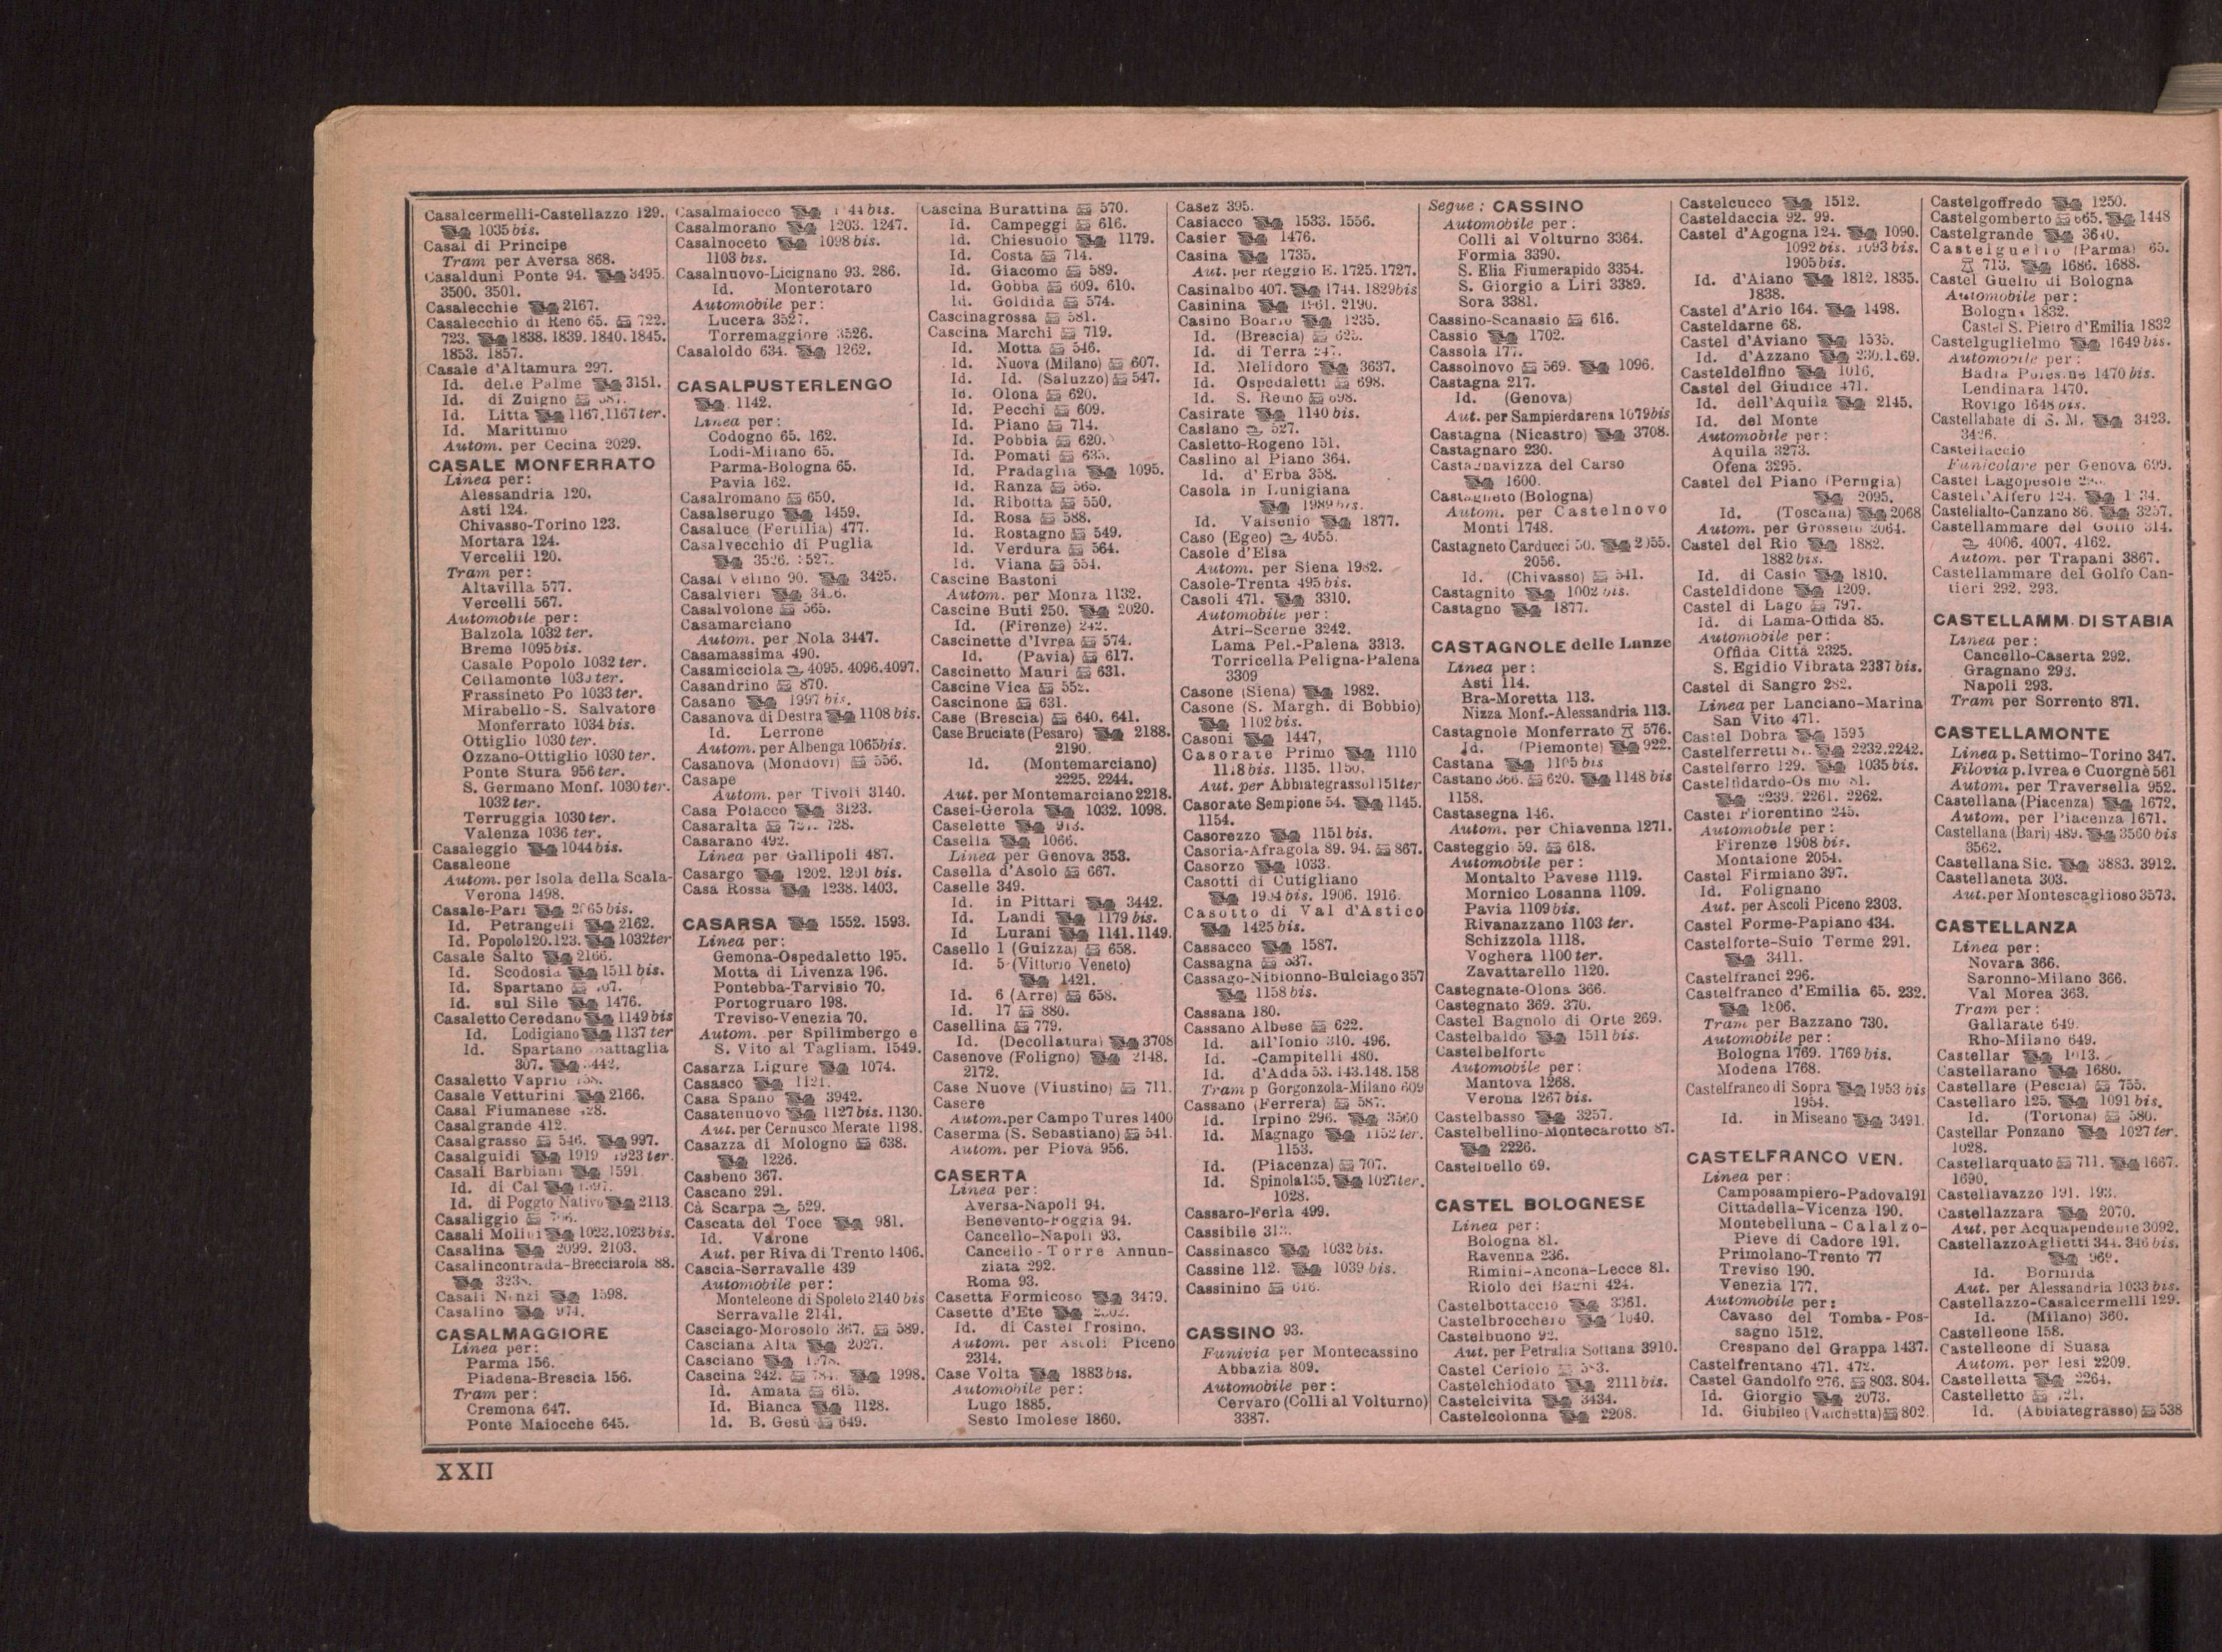 Casalcermelli-Castellazzo 129.
1035 bis.
Casal di Principe
Tram per Aversa 868.
Casalduni Ponte 94. 3495.
3500. 3501.
Casalecchie 2167.
Casalecchio di Reno 65. 722.
723. 1838. 1839. 1840. 1845.
1853. 1857.
Casale d'Altamura 297.
Id. delle Palme 3151.
Id. di Zuigno
Id. Litta 1167. 1167 ter.
Id. Marittimo
Autom. per Cecina 2029.
CASALE MONFERRATO
Linea per:
Alessandria 120.
Asti 124.
Chivasso-Torino 123.
Mortara 124.
Vercelli 120.
Tram per:
Altavilla 577.
Vercelli 567.
Automobile per:
Balzola 1032 ter.
Breme 1095 bis.
Casale Popolo 1032 ter.
Cellamonte ter.
Frassineto Po 1033 ter.
Mirabello-S. Salvatore
Monferrato 1034 bis.
Ottiglio 1030 ter.
Ozzano-Ottiglio 1030 ter.
Ponte Stura 956 ter.
S. Germano Monf. 1030 ter.
1032 ter.
Terruggia 1030 ter.
Valenza 1036 ter.
Casaleggio 1044 bis.
Casaleone
Autom. per Isola della Scala-
Verona 1498.
Casale-Pari 2065 bis.
Id. Petrangeli 2162.
Id. Popolo 120. 123. 1032 ter
Casale Salto 2166.
Id. Scodosia 1511 bis.
Id. Spartano
Id. sul Sile 1476.
Casaletto Ceredano 1149 bis
Id. Lodigiano 1137 ter
Id. Spartano Battaglia
307. 3442.
Casaletto Vaprio
Casale Vetturini 2166.
Casal Fiumanese
Casalgrande 412.
Casalgrasso 546. 997.
Casalguidi 1919 1923 ter.
Casali Barbiani 1591.
Id. di Cal
Id. di Poggio Nativo 2113.
Casaliggio
Casali Molini 1023. 1023 bis.
Casalina 2099. 2103.
Casalincontrada-Brecciarola 88.
Casali Nenzi 1598.
Casalino 974.
CASALMAGGIORE
Linea per:
Parma 156.
Piadena-Brescia 156.
Tram per:
Cremona 647.
Ponte Maiocche 645.
Casalmaiocco bis.
Casalmorano 1203. 1247.
Casalnoceto 1098 bis.
1103 bis.
Casalnuovo-Licignano 93. 286.
Id. Monterotaro
Automobile per:
Lucera 3527.
Torremaggiore 3526.
Casaloldo 634. 1262.
CASALPUSTERLENGO
1142.
Linea per:
Codogno 65. 162.
Lodi-Milano 65.
Parma-Bologna 65.
Pavia 162.
Casalromano 650.
Casalserugo 1459.
Casaluce (Fertilia) 477.
Casalvecchio di Puglia
3526. 3527.
Casal Velino 90. 3425.
Casalvieri
Casalvolone 565.
Casamarciano
Autom. per Nola 3447.
Casamassima 490.
Casamicciola 4095. 4096. 4097.
Casandrino 870.
Casano 1997 bis.
Casanova di Destra 1108 bis.
Id. Lerrone
Autom. per Albenga 1065 bis.
Casanova (Mondovì) 556.
Casape
Autom. per Tivoli 3140.
Casa Polacco 3123.
Casaralta 728.
Casarano 492.
Linea per Gallipoli 487.
Casargo 1202. 1201 bis.
Casa Rossa 1238. 1403.
CASARSA 1552. 1593.
Linea per:
Gemona-Ospedaletto 195.
Motta di Livenza 196.
Pontebba-Tarvisio 70.
Portogruaro 198.
Treviso-Venezia 70.
Autom. per Spilimbergo e
S. Vito al Tagliam. 1549.
Casarza Ligure 1074.
Casasco 1121.
Casa Spano 3942.
Casatenuovo 1127 bis. 1130.
Aut. per Cernusco Merate 1198.
Casazza di Mologno 638.
1226.
Casbeno 367.
Cascano 291.
Cà Scarpa 529.
Cascata del Toce 981.
Id. Varone
Aut. per Riva di Trento 1406.
Cascia-Serravalle 439
Automobile per:
Monteleone di Spoleto 2140 bis
Serravalle 2141.
Casciago-Morosolo 367. 589.
Casciana Alta 2027.
Casciano
Cascina 242. 1998.
Id. Amata 615.
Id. Bianca 1128.
Id. B. Gesù 649.
Cascina Burattina 570.
Id. Campeggi 616.
Id. Chiesuolo 1179.
Id. Costa 714.
Id. Giacomo 589.
Id. Gobba 609. 610.
Id. Goldida 574.
Cascinagrossa 581.
Cascina Marchi 719.
Id. Motta 546.
Id. Nuova (Milano) 607.
Id. Id. (Saluzzo) 547.
Id. Olona 620.
Id. Pecchi 609.
Id. Piano 714.
Id. Pobbia 620.
Id. Pomati 635.
Id. Pradaglia 1095.
Id. Ranza 565.
Id. Ribotta 550.
Id. Rosa 588.
Id. Rostagno 549.
Id. Verdura 564.
Id. Viana 554.
Cascine Bastoni
Autom. per Monza 1132.
Cascine Buti 250. 2020.
Id. (Firenze) 242.
Cascinette d'Ivrea 574.
Id. (Pavia) 617.
Cascinetto Mauri 631.
Cascine Vica 552.
Cascinone 631.
Case (Brescia) 640. 641.
Case Bruciate (Pesaro) 2188.
2190.
Id. (Montemarciano)
2225. 2244.
Aut. per Montemarciano 2218.
Casei-Gerola 1032. 1098.
Caselette 913.
Casella 1066.
Linea per Genova 353.
Casella d'Asolo 667.
Caselle 349.
Id. in Pittari 3442.
Id. Landi 1179 bis.
Id Lurani 1141. 1149.
Casello 1 (Guizza) 658.
Id. 5 (Vittorio Veneto)
1421.
Id. 6 (Arre) 658.
Id. 17 880.
Casellina 779.
Id. (Decollatura) 3708
Casenove (Foligno) 2148.
2172.
Case Nuove (Viustino) 711.
Casere
Autom. per Campo Tures 1400
Caserma (S. Sebastiano) 541.
Autom. per Piovà 956.
CASERTA
Linea per:
Aversa-Napoli 94.
Benevento-Foggia 94.
Cancello-Napoli 93.
Cancello-Torre Annun-
ziata 292.
Roma 93.
Casetta Formicoso 3479.
Casette d'Ete
Id. di Castel Trosino.
Autom. per Ascoli Piceno
2314.
Case Volta 1883 bis.
Automobile per:
Lugo 1885.
Sesto Imolese 1860.
Casez 395.
Casiacco 1533. 1556.
Casier 1476.
Casina 1735.
Aut. per Reggio E. 1725. 1727.
Casinalbo 407. 1744. 1829 bis
Casinina 1961. 2190.
Casino Boario 1235.
Id. (Brescia) 625.
Id. di Terra 247.
Id. Melidoro 3637.
Id. Ospedaletti 698.
Id. S. Remo 698.
Casirate 1140 bis.
Caslano 527.
Casletto-Rogeno 151.
Caslino al Piano 364.
Id. d'Erba 358.
Casola in Lunigiana
1989 bis.
Id. Valsenio 1877.
Caso (Egeo) 4055.
Casole d'Elsa
Autom. per Siena 1982.
Casole-Trenta 495 bis.
Casoli 471. 3310.
Automobile per:
Atri-Scerne 3242.
Lama Pel.-Palena 3313.
Torricella Peligna-Palena
3309
Casone (Siena) 1982.
Casone (S. Margh. di Bobbio)
1102 bis.
Casoni 1447,
Casorate Primo 1110
1118 bis. 1135. 1150.
Aut. per Abbiategrasso 1151 ter
Casorate Sempione 54. 1145.
1154.
Casorezzo 1151 bis.
Casoria-Afragola 89. 94. 867.
Casorzo 1033.
Casotti di Cutigliano
1904 bis. 1906. 1916.
Casotto di Val d'Astico
1425 bis.
Cassacco 1587.
Cassagna 537.
Cassago-Nibionno-Bulciago 357
1158 bis.
Cassana 180.
Cassano Albese 622.
Id. all'Ionio 310. 496.
Id. -Campitelli 480.
Id. d'Adda 53. 143. 148. 158
Tram p Gorgonzola-Milano 609
Cassano (Ferrera) 587.
Id. Irpino 296. 3560
Id. Magnago 1152 ter.
1153.
Id. (Piacenza) 707.
Id. Spinola 135. 1027 ter.
1028.
Cassaro-Ferla 499.
Cassibile
Cassinasco 1032 bis.
Cassine 112. 1039 bis.
Cassinino 616.
CASSINO 93.
Funivia per Montecassino
Abbazia 809.
Automobile per:
Cervaro (Colli al Volturno)
3387.
Segue: CASSINO
Automobile per:
Colli al Volturno 3364.
Formia 3390.
S. Elia Fiumerapido 3354.
S. Giorgio a Liri 3389.
Sora 3381.
Cassino-Scanasio 616.
Cassio 1702.
Cassola 177.
Cassolnovo 569. 1096.
Castagna 217.
Id. (Genova)
Aut. per Sampierdarena 1079 bis
Castagna (Nicastro) 3708.
Castagnaro 230.
Castagnavizza del Carso
1600.
Castagneto (Bologna)
Autom. per Castelnovo
Monti 1748.
Castagneto Carducci 50. 2055.
2056.
Id. (Chivasso) 541.
Castagnito 1002 bis.
Castagno 1877.
CASTAGNOLE delle Lanze
Linea per:
Asti 114.
Bra-Moretta 113.
Nizza Monf.-Alessandria 113.
Castagnole Monferrato 576.
Id. (Piemonte) 922.
Castana 1105 bis
Castano 366. 620. 1148 bis
1158.
Castasegna 146.
Autom. per Chiavenna 1271.
Casteggio 59. 618.
Automobile per:
Montalto Pavese 1119.
Mornico Losanna 1109.
Pavia 1109 bis.
Rivanazzano 1103 ter.
Schizzola 1118.
Voghera 1100 ter.
Zavattarello 1120.
Castegnate-Olona 366.
Castegnato 369. 370.
Castel Bagnolo di Orte 269.
Castelbaldo 1511 bis.
Castelbelforte
Automobile per:
Mantova 1268.
Verona 1267 bis.
Castelbasso 3257.
Castelbellino-Montecarotto 87.
2226.
Castelbello 69.
CASTEL BOLOGNESE
Linea per:
Bologna 81.
Ravenna 236.
Rimini-Ancona-Lecce 81.
Riolo dei Bagni 424.
Castelbottaccio 3361.
Castelbrocchero 1040.
Castelbuono 92.
Aut. per Petralia Sottana 3910.
Castel Ceriolo
Castelchiodato 2111 bis.
Castelcivita 3434.
Castelcolonna 2208.
Castelcucco 1512.
Casteldaccia 92. 99.
Castel d'Agogna 124. 1090.
1092 bis. 1093 bis.
1905 bis.
Id. d'Aiano 1812. 1835.
1838.
Castel d'Ario 164. 1498.
Casteldarne 68.
Castel d'Aviano 1535.
Id. d'Azzano
Casteldelfino 1016.
Castel del Giudice 471.
Id. dell'Aquila 2145.
Id. del Monte
Automobile per:
Aquila 3273.
Ofena 3295.
Castel del Piano (Perugia)
2095.
Id. (Toscana) 2068
Autom. per Grosseto 2064.
Castel del Rio 1882.
1882 bis.
Id. di Casio 1810.
Casteldidone 1209.
Castel di Lago 797.
Id. di Lama-Offida 85.
Automobile per:
Offida Città 2325.
S. Egidio Vibrata 2337 bis.
Castel di Sangro 282.
Linea per Lanciano-Marina
San Vito 471.
Castel Dobra 1595
Castelferretti 2232. 2242.
Castelferro 129. 1035 bis.
Castelfidardo-Osimo 81.
2239. 2261. 2262.
Castel Fiorentino 245.
Automobile per:
Firenze 1908 bis.
Montaione 2054.
Castel Firmiano 397.
Id. Folignano
Aut. per Ascoli Piceno 2303.
Castel Forme-Papiano 434.
Castelforte-Suio Terme 291.
3411.
Castelfranci 296.
Castelfranco d'Emilia 65. 232.
1806.
Tram per Bazzano 730.
Automobile per:
Bologna 1769. 1769 bis.
Modena 1768.
Castelfranco di Sopra 1953 bis
1954.
Id. in Miseano 3491.
CASTELFRANCO VEN.
Linea per:
Camposampiero-Padova 191
Cittadella-Vicenza 190.
Montebelluna-Calalzo-
Pieve di Cadore 191.
Primolano-Trento 77
Treviso 190.
Venezia 177.
Automobile per:
Cavaso del Tomba-Pos-
sagno 1512.
Crespano del Grappa 1437.
Castelfrentano 471. 472.
Castel Gandolfo 276. 803. 804.
Id. Giorgio 2073.
Id. Giubileo (Valchetta) 802.
Castelgoffredo 1250.
Castelgomberto 665. 1448
Castelgrande 3640.
Castelguelfo (Parma) 65.
713. 1686. 1688.
Castel Guelfo di Bologna
Automobile per:
Bologna 1832.
Castel S. Pietro d'Emilia 1832
Castelguglielmo 1649 bis.
Automobile per:
Badia Polesine 1470 bis.
Lendinara 1470.
Rovigo 1648 bis.
Castellabate di S. M. 3423.
3426.
Castellaccio
Funicolare per Genova 699.
Castel Lagopesole
Castell'Alfero 124.
Castellalto-Canzano 86. 3257.
Castellammare del Golfo 314.
4006. 4007. 4162.
Autom. per Trapani 3867.
Castellammare del Golfo Can-
tieri 292. 293.
CASTELLAMM. DI STABIA
Linea per:
Cancello-Caserta 292.
Gragnano 293.
Napoli 293.
Tram per Sorrento 871.
CASTELLAMONTE
Linea p. Settimo-Torino 347.
Filovia p. Ivrea e Cuorgnè 561
Autom. per Traversella 952.
Castellana (Piacenza) 1672.
Autom. per Piacenza 1671.
Castellana (Bari) 489. 3560 bis
3562.
Castellana Sic. 3883. 3912.
Castellaneta 303.
Aut. per Montescaglioso 3573.
CASTELLANZA
Linea per:
Novara 366.
Saronno-Milano 366.
Val Morea 363.
Tram per:
Gallarate 649.
Rho-Milano 649.
Castellar 1013.
Castellarano 1680.
Castellare (Pescia) 755.
Castellaro 125. 1091 bis.
Id. (Tortona) 580.
Castellar Ponzano 1027 ter.
1028.
Castellarquato 711. 1667.
1690.
Castellavazzo 191. 193.
Castellazzara 2070.
Aut. per Acquapendente 3092.
Castellazzo Aglietti 344. 346 bis.
962.
Id. Bormida
Aut. per Alessandria 1033 bis.
Castellazzo-Casalcermelli 129.
Id. (Milano) 360.
Castelleone 158.
Castelleone di Suasa
Autom. per Iesi 2209.
Castelletta 2264.
Castelletto
Id. (Abbiategrasso) 538
XXII